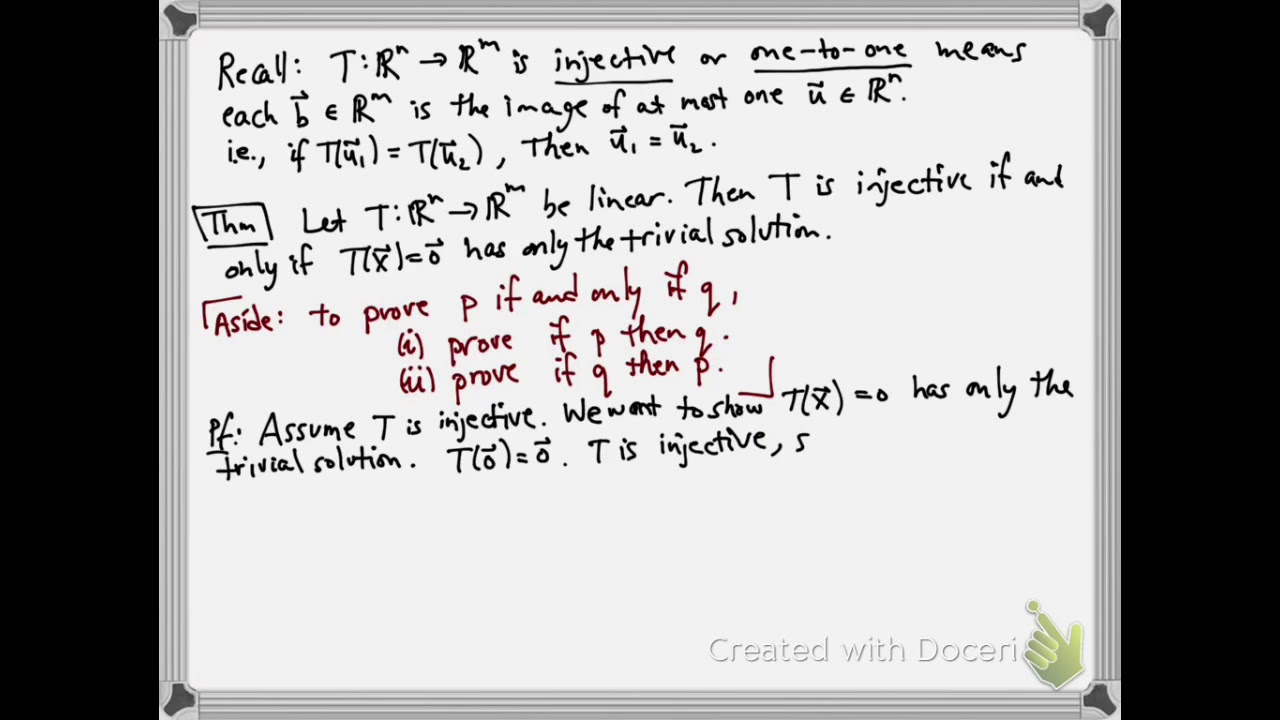 Recall: T: ℝⁿ → ℝᵐ is injective or one-to-one means
each b⃗ ∈ ℝᵐ is the image of at most one u⃗ ∈ ℝⁿ.
i.e., if T(u⃗₁) = T(u⃗₂), then u⃗₁ = u⃗₂.
Thm Let T: ℝⁿ → ℝᵐ be linear. Then T is injective if and
only if T(x⃗) = 0⃗ has only the trivial solution.
Aside: to prove p if and only if q,
(i) prove if p then q.
(ii) prove if q then p.
Pf: Assume T is injective. We want to show T(x⃗) = 0 has only the
trivial solution. T(0⃗) = 0⃗. T is injective, s
Created with Doceri